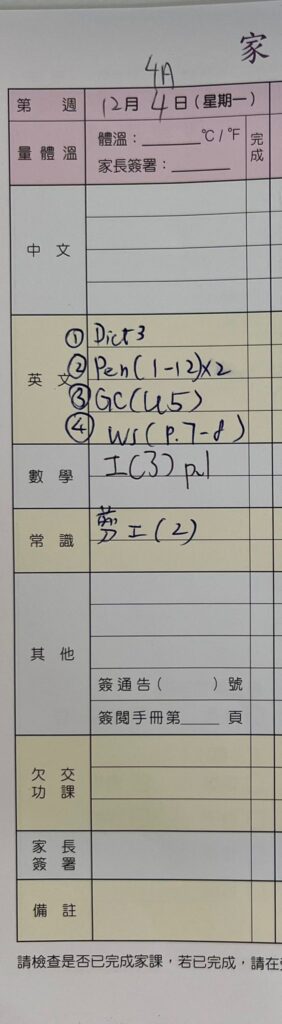 家
4A
第 週 12月4日(星期一)
量體溫 體溫：______℃/℉ 完成
家長簽署：______
中文
英文 ① Dict 3
② Pen(1-12)x2
③ GC(U5)
④ WS(P.7-8)
數學 工(3) p.1
常識 工(2)
其他
簽通告( )號
簽閱手冊第____頁
欠交功課
家長簽署
備註
請檢查是否已完成家課，若已完成，請在